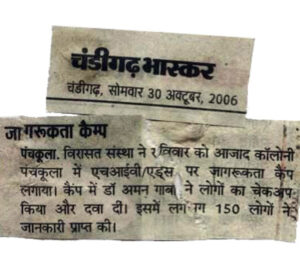 चंडीगढ़ भास्कर
चंडीगढ़, सोमवार 30 अक्टूबर, 2006
जागरूकता कैम्प
पंचकूला. विरासत संस्था ने रविवार को आजाद कॉलोनी
पंचकूला में एचआईवी/एड्स पर जागरूकता कैंप
लगाया। कैंप में डॉ अमन गाबा ने लोगों का चेकअप
किया और दवा दी। इसमें लगभग 150 लोगों ने
जानकारी प्राप्त की।